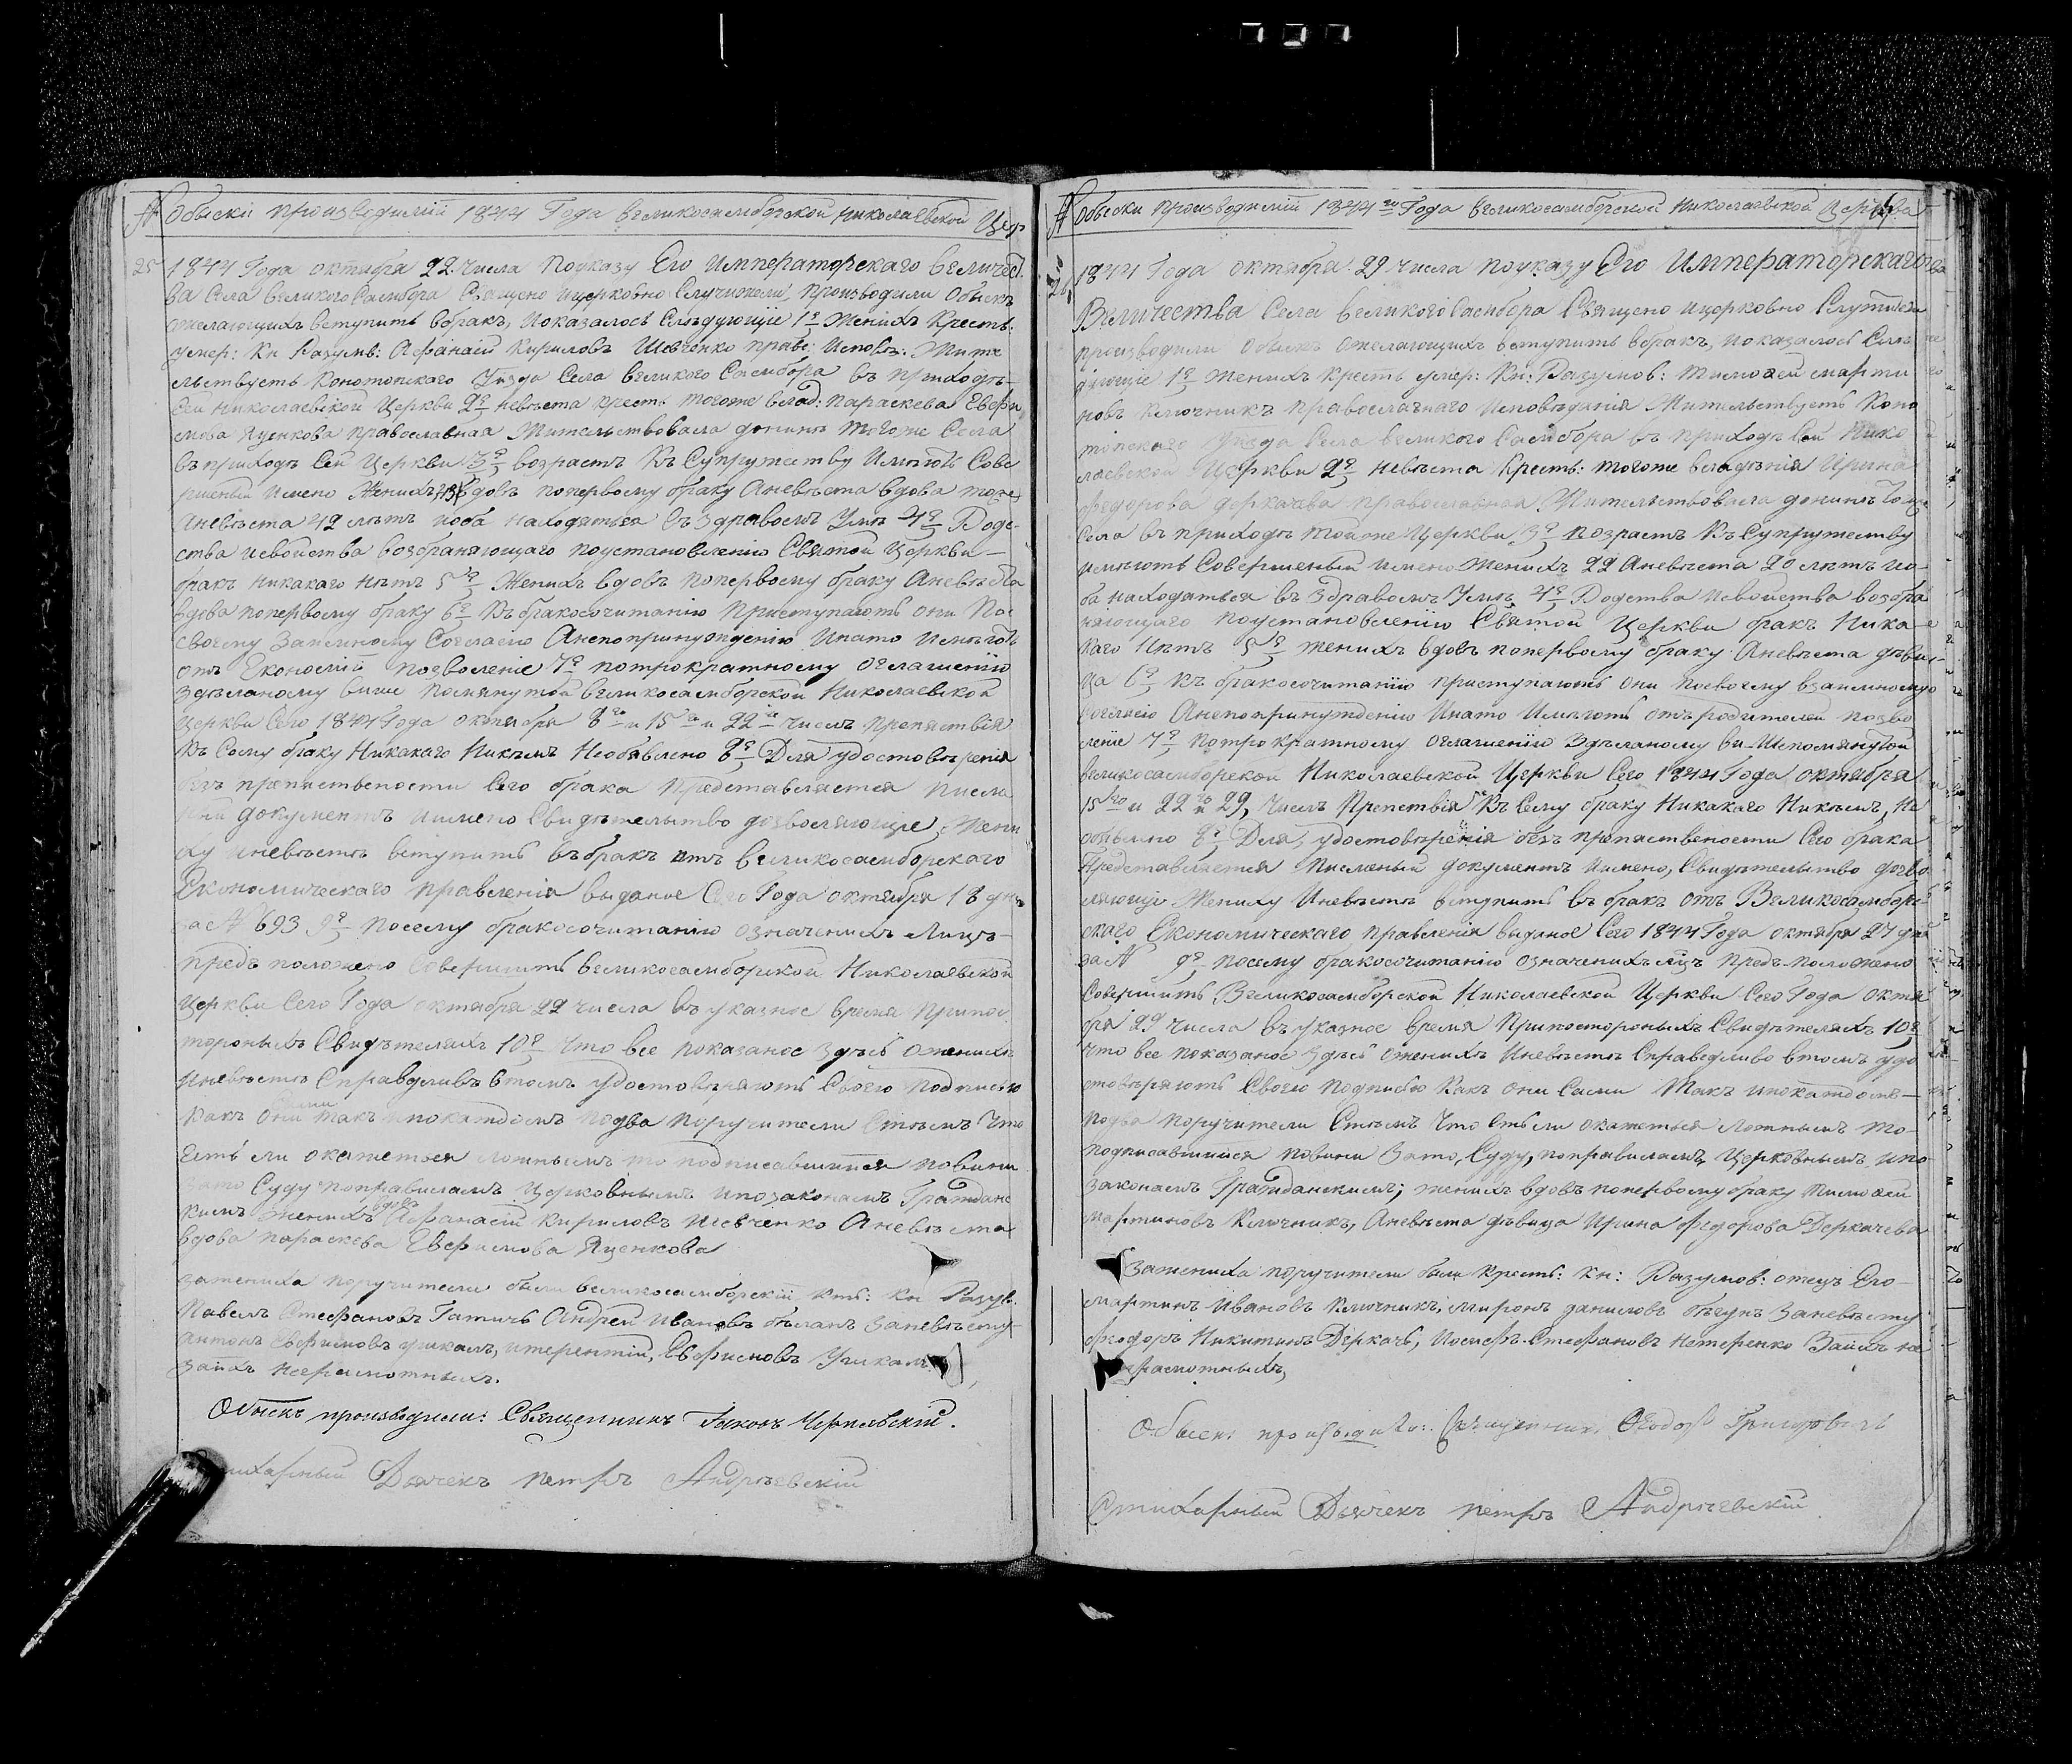 № Обыски производимiи 1844 Года великосамборской николаевской Цер
25 1844 Года октября 22. числа Поуказу Его Императорскаго величест
ва Села великого Самбора Священо ицерковно Служители, производили Обыскъ
ожелающихъ вступить вбракъ, ипоказалось Следующiе 1е женихъ крестъ:
умер: Кн Разумв: Афанасiй Кириловъ Шевченко правс: Исповед: Жите
льствуетъ Конотопскаго Уезда Села великого Самбора въ приходе
Сей николаевской Церкви 2е невеста крестъ тогоже влад: параскева Евфи
мова Яценкова православная Жительствовала донине тогоже Села
въ приходе Сей Церкви 3е возрастъ Къ Супружеству Имеютъ Сове
ршеный Имено Женихъ вдовъ поперьвому браку Аневеста вдова тоже
Аневеста 42 летъ иоба находяться въ здравомъ Уме 4е Родс-
ства исвойства возбраняющаго поустановленiю Святой Церкви
бракъ никакаго нетъ 5е Женихъ вдовъ поперьвому браку Аневеста
вдова поперьвому браку 6е Къ бракосочитанiю Приступаютъ они По
своему Заимному Согласiю Анепопринуждению Инато Имеютъ
отъ Економiй позволенiе 7е потрократному оглашенiю
зделаному више помянутой великосамборской Николаевской
Церкви Сего 1844 Года октября 8го и 15го и 22го числъ препятствiя
Къ Сему браку Никакаго Никемъ Необявлено 8е Для удостоверенiя
безъ препятствености Сего брака Представляется писме
ный документъ имено Свидетельство дозволяющiе Жени
ху иневесте вступить въ бракъ отъ великосамборскаго
Економическаго правленiя выданое Сего Года октября 18 дня
за № 693 9е Посему бракосочитанiю означенихъ Лицъ
предъ положено Совершить великосамборской Николаевской
Церкви Сего Года октября 22 числа въ указное время Припос
тороныхъ Свидетеляхъ 10е Что все показаное здесь ожених
Иневесте Справедливъ втомъ удостоверяютъ Своею подписю
Какъ Они сами такъ ипокаждомъ подва поручители Стемъ Что
Естьли окажеться ложнымъ то подписавшийся повини
зато Суду поправиламъ Церковнымъ ипозаконамъ Гражданс
кимъ женихъ вдовъ Афанасiй Кириловъ Шевченко Аневеста
вдова параскева Евфимова Яценкова
зажениха поручители были великосамборскiй кть: кн Разум.
Павелъ Стефановъ Гатичъ Андрей Ивановъ беланъ Заневесту
антонъ Евфимовъ ушкалъ, итерентiй, Евфимовъ Ушкалъ
Заихъ неграмотныхъ.
Обыскъ производили: Священникъ
Стихарный Дьячекъ петръ Андреевскiй
№ Обыски производимiй 1844го Года великосамборской Николаевской Церкова
26 1844 Года октября 29 числа поуказу Его Императорскаго
Величества Села великого Самбора Священо ицерковно Служители
производили обыскъ ожелающихъ вступить вбракъ, ипоказалось Сле
дующiе 1е женихъ крестъ умер: Кн: Разумов: тимофей марти
новъ ключникъ православнаго исповеданiя Жительствуетъ Коно
топскаго Уезда Села великого Самбора въ приходе Сей Нико
лаевской Церкви 2е невеста крестъ: тогоже владенiя Ирина
федорова деркачева православная Жительствовала донине тогоже
Села въ приходе тойже Церкви 3е возрастъ Къ Супружеству
имеютъ Совершеный имено Женихъ 22 Аневеста 20 летъ ио
ба находяться въ здравомъ Уме 4е Родства исвойства возбра
няющаго Поустановленiю Святой Церкви бракъ Ника
каго Нетъ 5е женихъ вдовъ поперьвому браку Аневеста деви
ца 6е къ бракосочитанiю приступаютъ они посвоему взаимному
согласiю Анепопринужденiю Инато Имеютъ отъ родителей позво
ленiе 7е потрократному оглашенiю зделаному ви Шепомянутой
великосамборской Николаевской Церкви Сего 1844 Года октября
15го и 22го и 29, Числъ Препятствiя Къ Сему браку Никакаго Никемъ, Не
обявлено 8е Для, удостоверенiя безъ препятствености Сего брака
Представляется писменый документъ имено, Свидетельство дозво
ляющiе Жениху Иневесте вступить въ бракъ отъ Великосамборс
скаго Економическаго правленiя выданое Сего 1844 Года октября 27 дня
за № 9е посему бракосочитанiю означенихъ лицъ предъ положено
Совершить Великосамборской Николаевской Церкви Сего Года октя
бря 29 числа въ указное время Припостороныхъ Свидетеляхъ 10е
что все показаное здесь оженихе Иневесте Справедливо втомъ удо
стоверяютъ Своею подписью Какъ они Сами Такъ ипокаждомъ
подва поручители Стемъ Что Естьли окажеться ложнымъ то
подписавшийся повини Зато, Суду, поправиламъ, Церковнымъ, ипо
законамъ Гражданскимъ; женихъ вдовъ поперьвому браку тимофей
мартиновъ Ключникъ, Аневеста девица Ирина Федорова Деркачева
Зажениха поручители были Крестъ: Кн: Разумов: отецъ Его
мартинъ Ивановъ Ключникъ, миронъ даниловъ бегунъ Заневесту
феодоръ Никитинъ Деркачъ, Иосифъ Стефановъ нетеренко Заихъ не
грамотныхъ,
Обыскъ производилъ: Священникъ Феодоръ Григоровичъ
Стихарный Дьячекъ петръ Андреевскiй